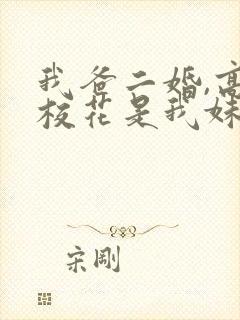 我爸二婚,高
校花是我妹
宋刚